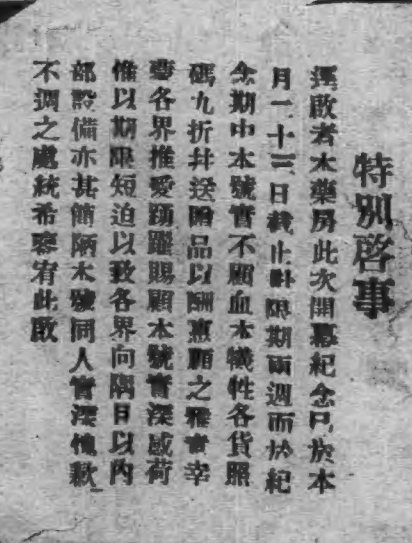 特別啓事
逕啟者本藥房此次開幕紀念已於本
月二十三日截止計限期兩週而於紀
念期中本號實不顧血本犧牲各貨照
碼九折幷送贈品以酬惠顧之雅意幸
蒙各界推愛踴躍賜顧本號實深感荷
惟以期限短迫以致各界向隅且以內
部設備亦甚簡陋本號同人實深愧歉
不週之處統希寥宥此啟